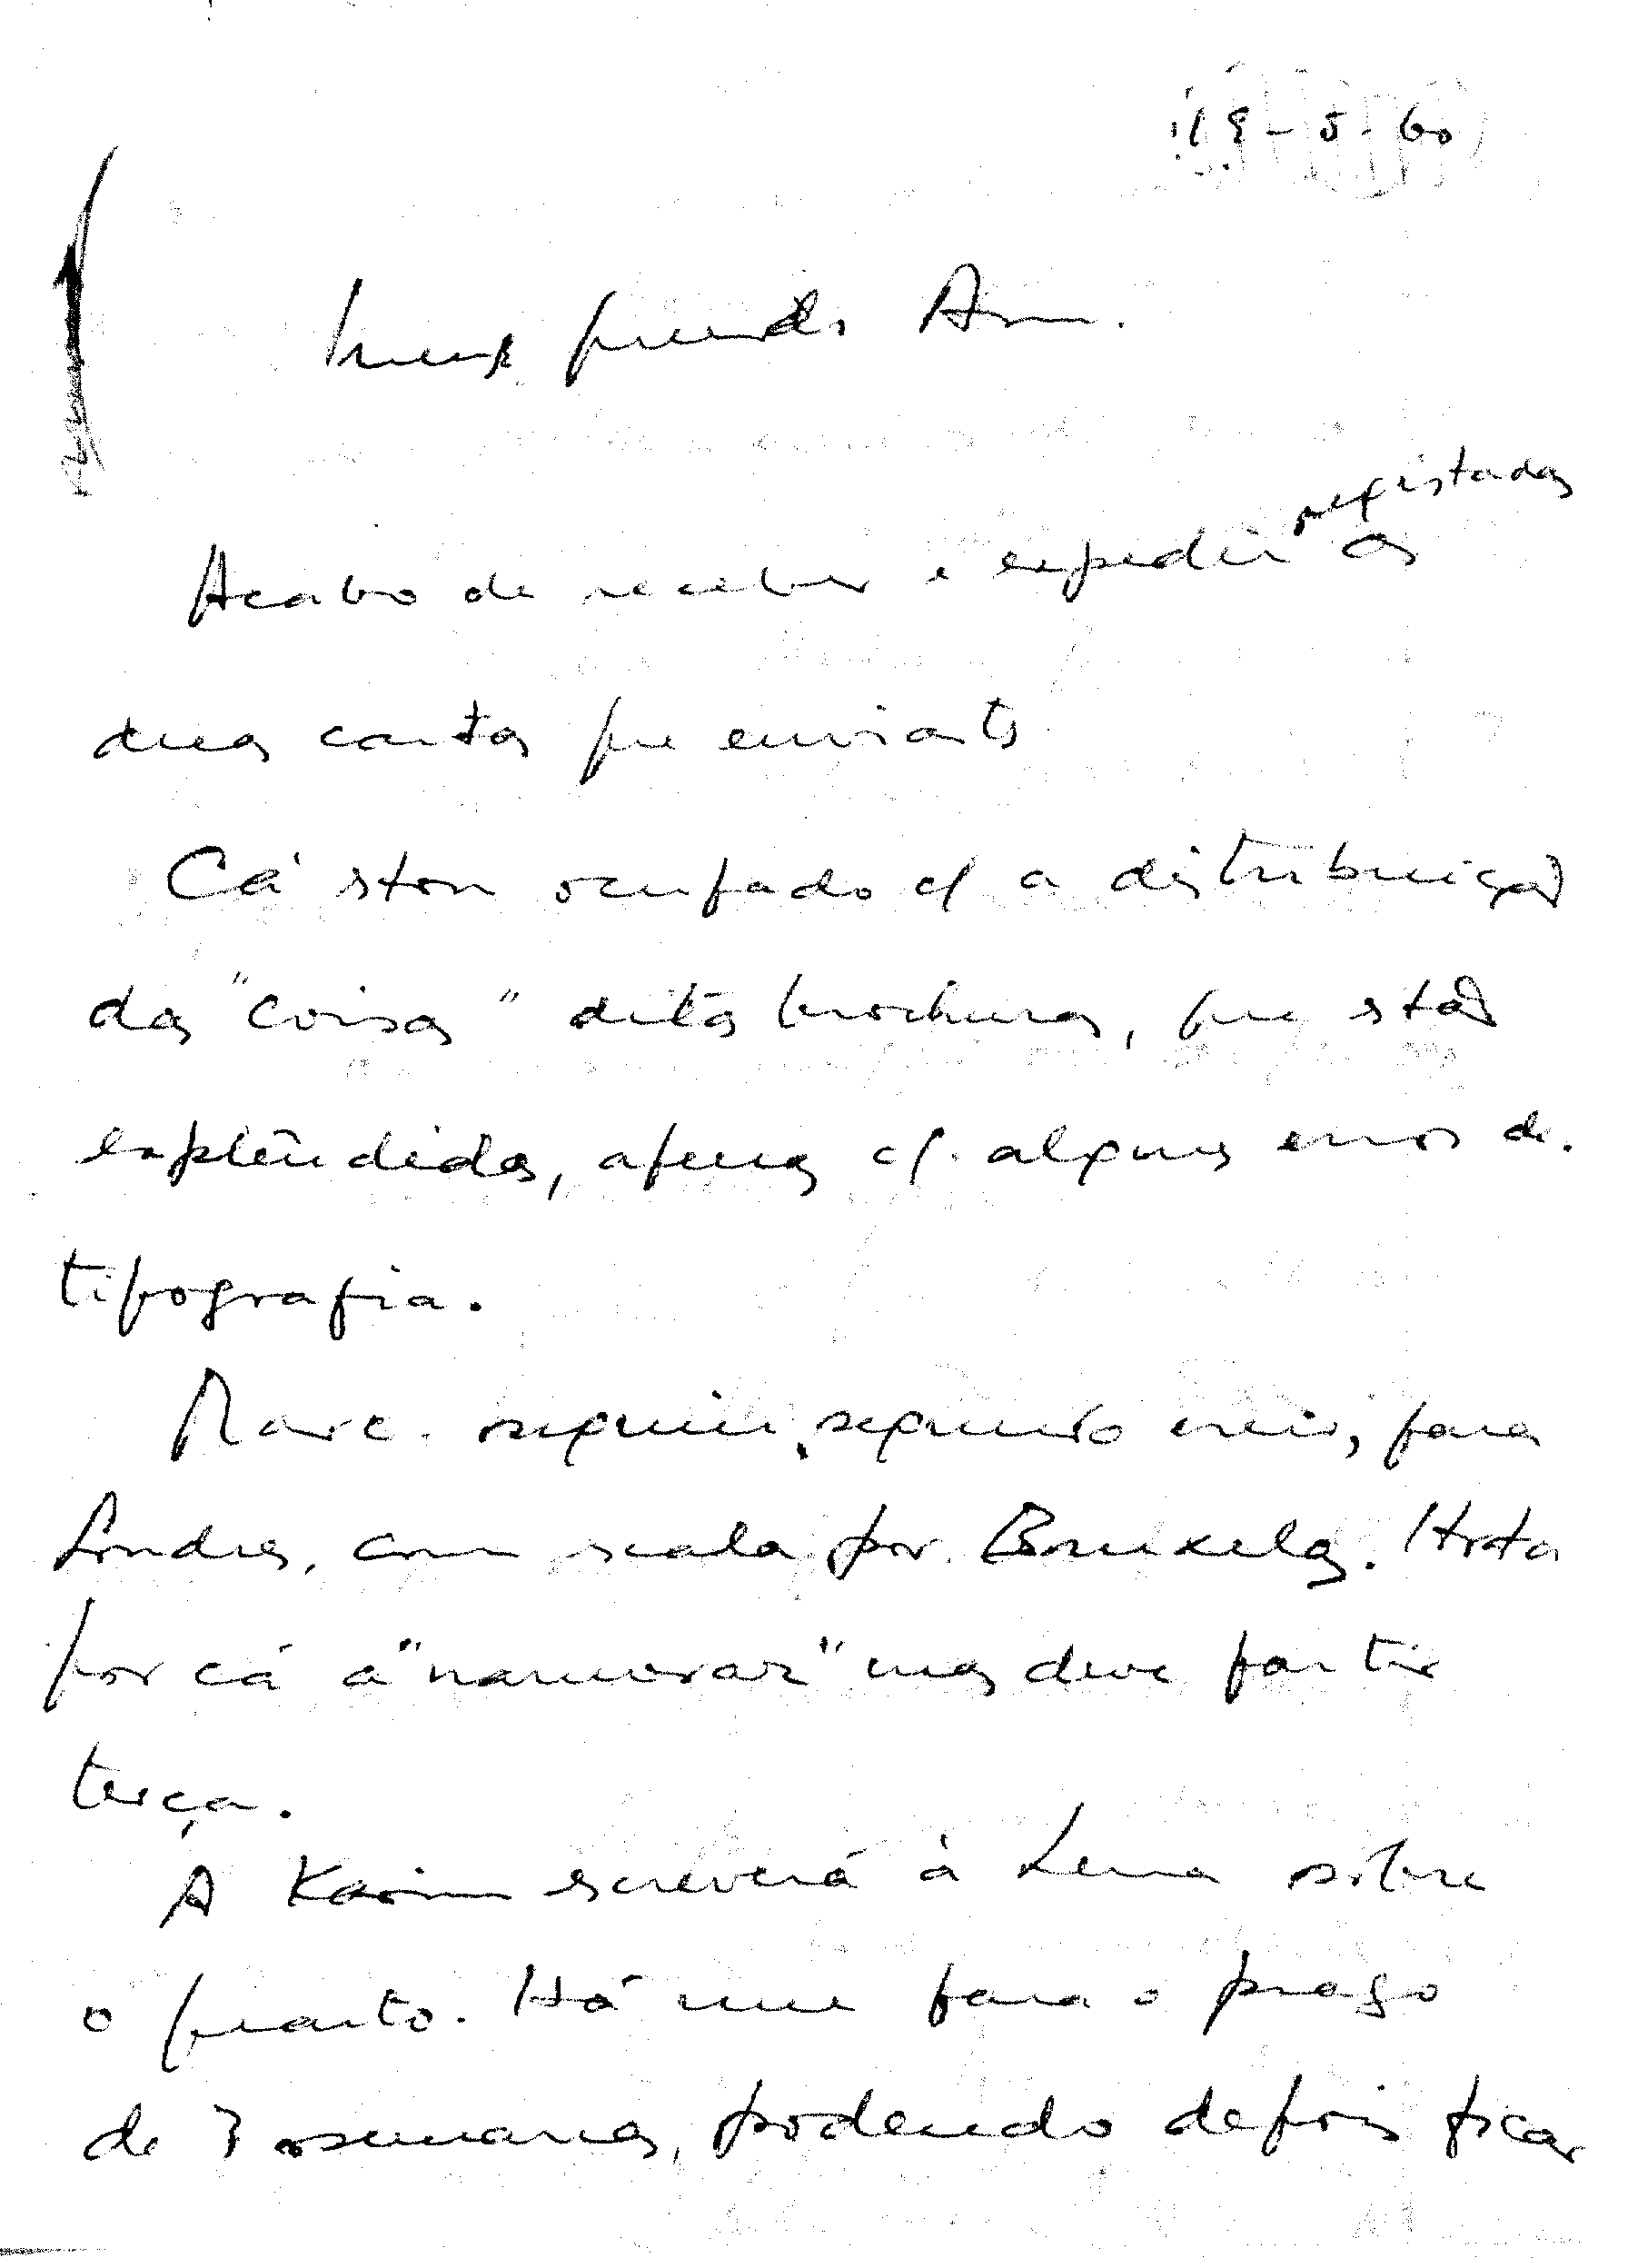 18-5-60
Meu querido Am.
registadas
Acabo de receber e expedir as
duas cartas que enviaste
Cá stou ocupado c/ a distribuição
das "coisas" ditas brochuras, que stão
explêndidas, apenas c/. alguns erros de
tipografia.
Marc. seguiu, segundo creio, para
Londres, com scala por Bruxelas. Hosta
por cá a "namorar" mas deve partir
terça.
A Karin screverá à Lena sôbre
o quarto. Há um para o prazo
de 3 semanas, podendo depois ficar